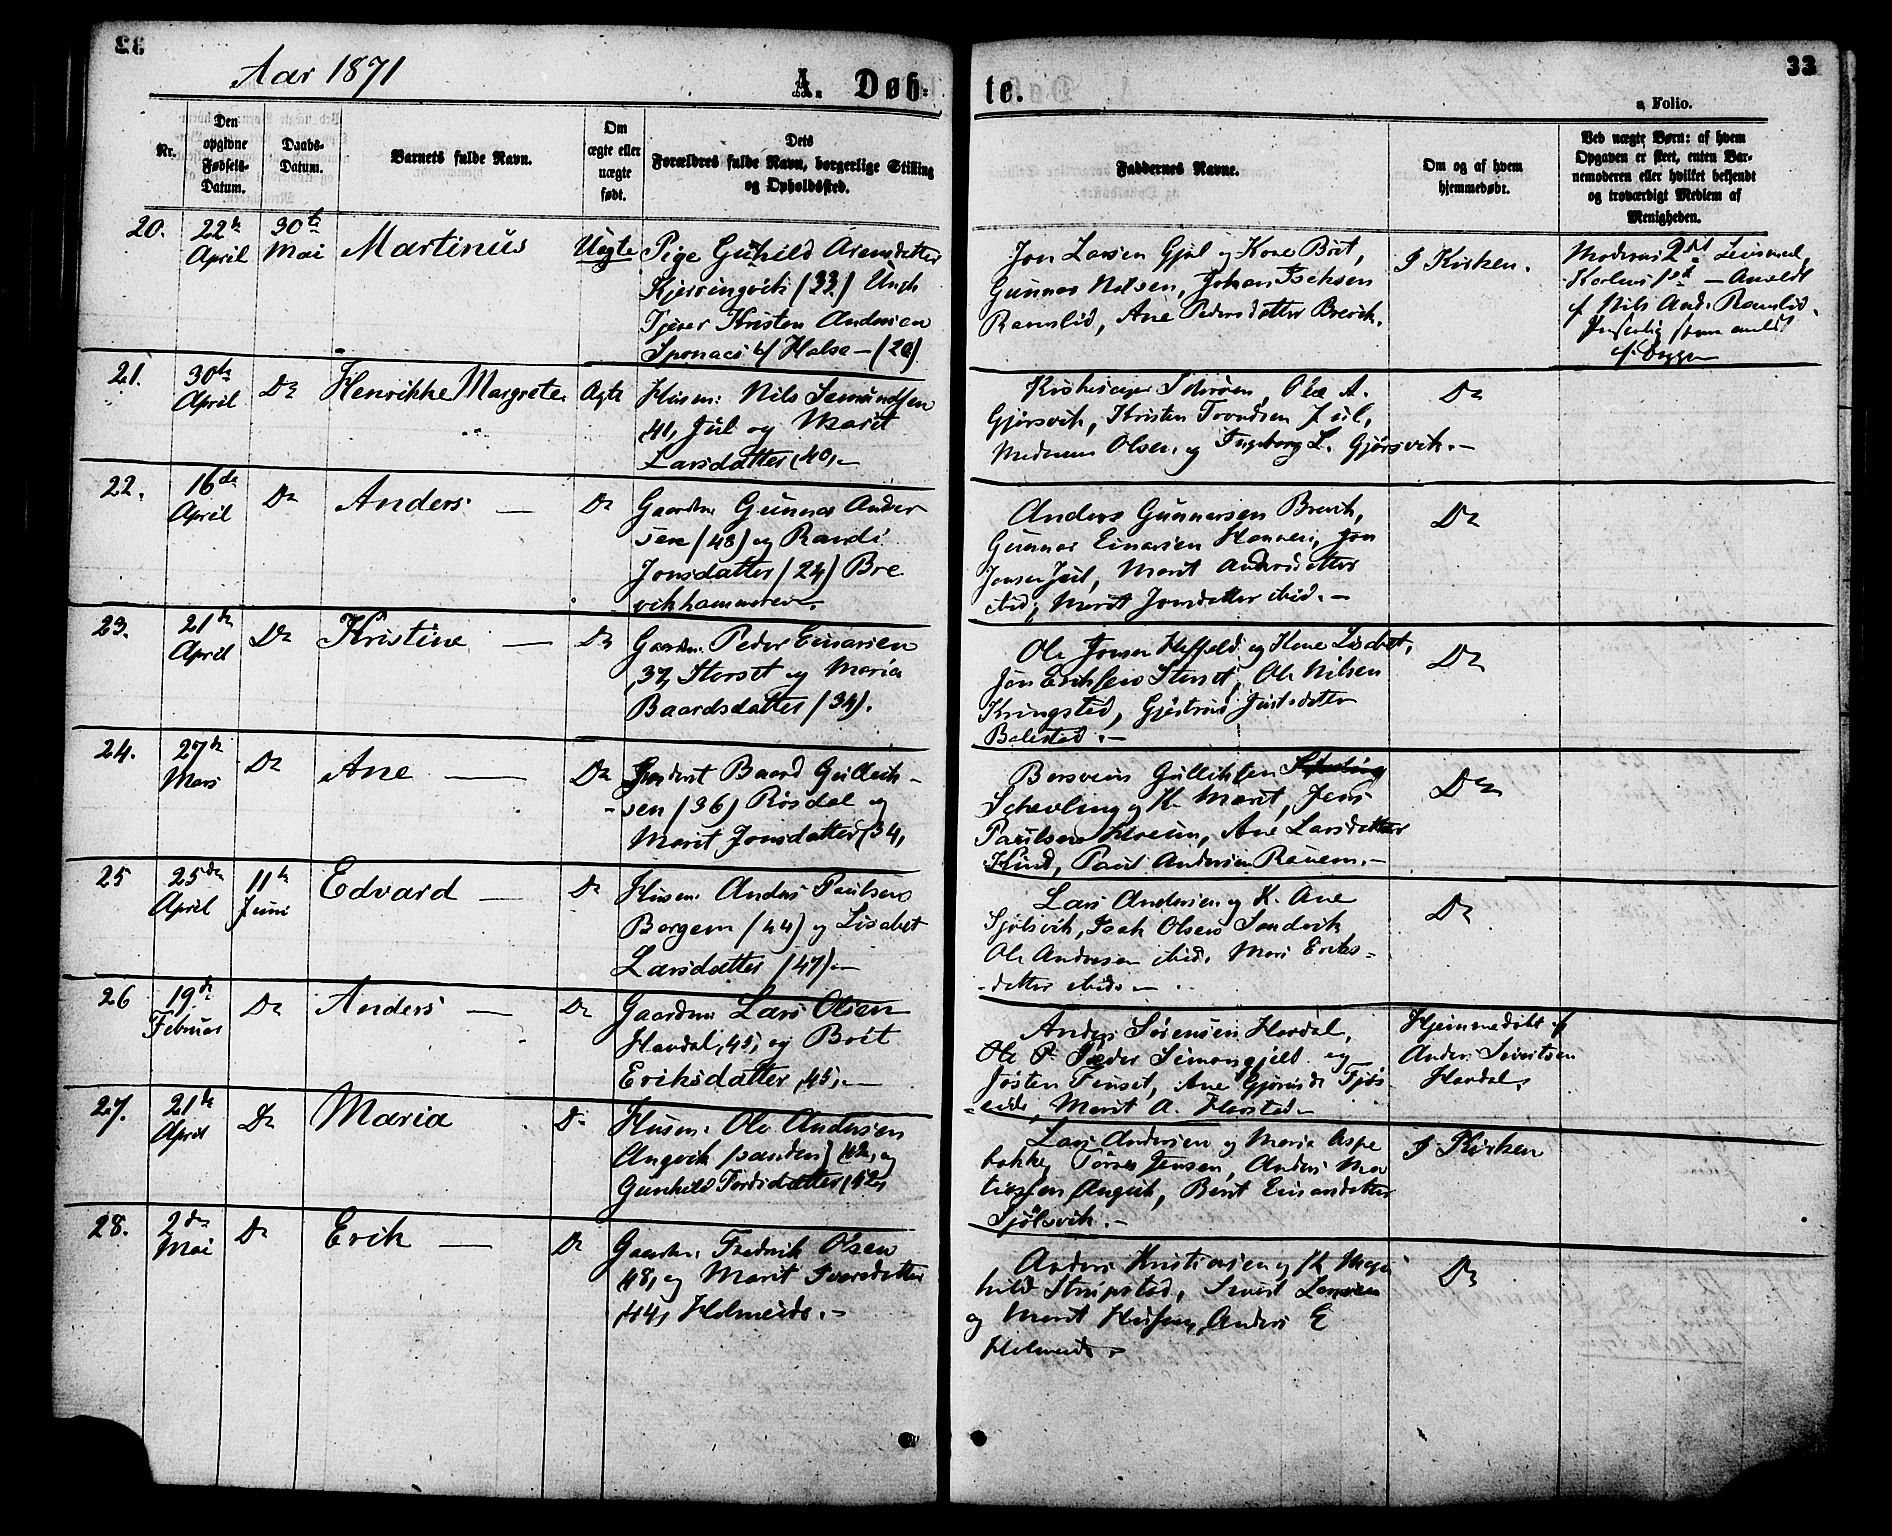 33
Aar 1871
A. Døb-
te.
33
Folio.
Nr.
Den opgivne Fødsels-Datum.
Daabs-Datum.
Barnets fulde Navn.
Om ægte eller uægte født.
Dets Forældres fulde Navn, borgerlige Stilling og Opholdssted.
Faddernes Navne.
Om og af hvem hjemmedøbt.
Ved uægte Børn: af hvem Opgaven er skeet, enten Barnemoderen eller hvilket bekjendt og troværdigt Medlem af Menigheden.
20.
22de April
30te Mai
Martinus
Uægte
Pige Gunild Arensdatter
(33) Ungk
Kristen Andersen
Halse - (20)
Jon Larsen Gjøl og Kone Brit,
Gunnar Nilsen, Johan Iseksen
Ramslid, Ane Pedersdatter Brevik.
I Kirken.
Moderens 2det Leiermaal,
Karlens 1ste - Anmeldt
f. Nils And. Ramslid.
21.
30te April
Do
Henrikke Margrete.
Ægte
Husm: Nils Semundsen
41, Jul og Marit
Larsdatter, 40, -
Ole A.
Gjørsvik, Kristen Trondsen Jul,
Olsen og Ingeborg L. Gjørsvik. -
Do
22.
16de April
Do
Anders -
Do
Gaardm: Gunnar Ander
sen (48) og Randi
Jonsdatter (24) Bre
vikhammeren.
Anders Gunnarsen Brevik,
Gunnar Einarsen Hammeren, Jon
Jonsen Jul, Marit Andersdatter
ibid, Marit Jonsdatter ibid. -
Do
23.
21de April
Do
Kristine -
Do
Gaardm: Peder Einarsen
37, Storset og Maria
Baardsdatter (34).
Ole Jonsen og Kone Lisabet,
Jon Eriksen Storset, Ole Nilsen
Kringsted,
Bolestad. -
Do
24.
27de Mars
Do
Ane -
Do
Baard Gullik-
sen (36) Røsdal og
Marit Jonsdatter (34,
Bersvein Gulliksen
Schevling og K. Marit, Jens
Paulsen Ane Larsdatter
Paul Andersen -
Do
25
25de April
11te Juni
Edvard -
Do
Husm: Anders Paulsen
Bergem (44) og Lisabet
Larsdatter (47) -
Lars Andersen og K. Ane
Sjølsvik, Isak Olsen Sandvik
Ole Andersen ibid. Mari Eriks-
datter ibid. -
Do
26
19de Februar
Do
Anders -
Do
Gaardm: Lars Olsen
Hardal, 45, og Brit
Eriksdatter, 45, -
Anders Sørensen Hardal,
Ole P. Sæder og
Marit A. Harstad -
Hjemmedøbt af
Anders Sivertsen
Hardal.
27.
21de April
Do
Maria
Do
Husm: Ole Andersen
Angvik (sanden) (42, og
Gunhild Tordsdatter, 42,
Lars Andersen og Marie Aspe
bakke, Jensen, Anders Ma
tiassen Angvik, Berit Einarsdatter
Sjølsvik. -
I Kirken
28.
2den Mai
Do
Erik -
Do
Gaardm: Fredrik Olsen
48, og Marit Iversdatter
44, Holmeide. -
Anders Kristiansen og K. Magn
hild Sivert
og Marit Anders E
Holmeide -
Do